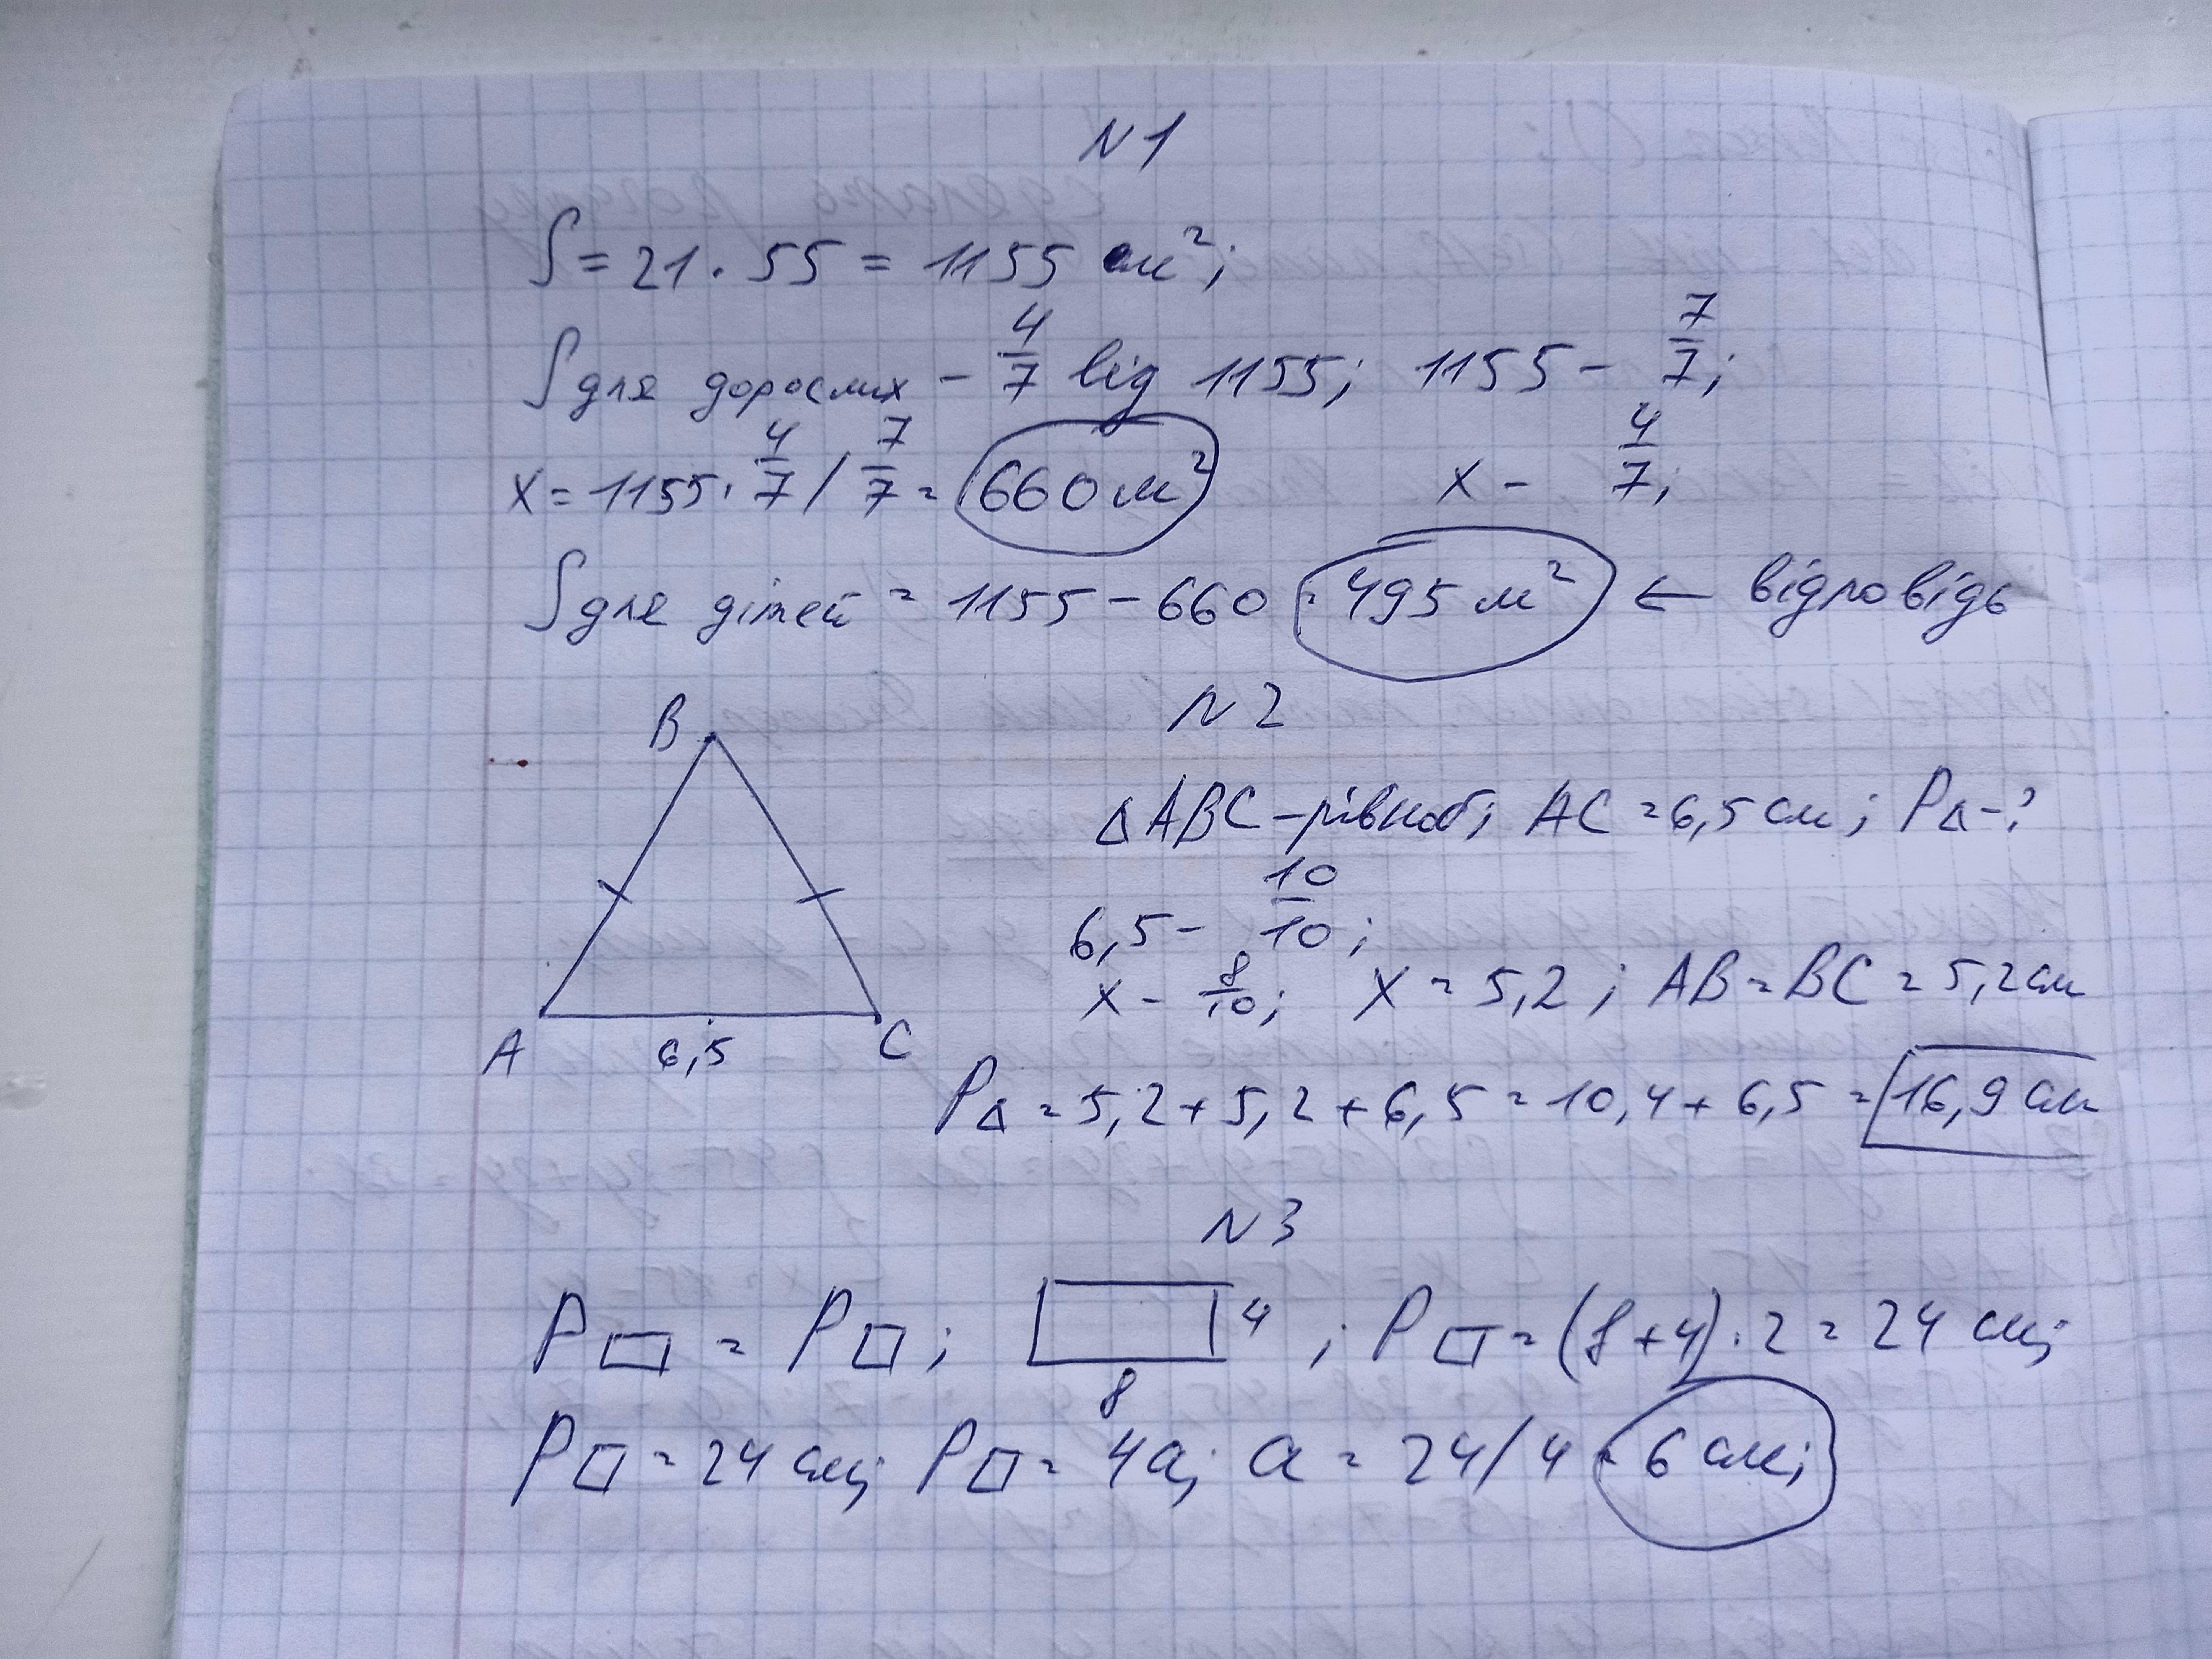 N1
S = 21 · 55 = 1155 м²;
S для дорослих - 4/7 від 1155; 1155 - 7/7;
x = 1155 · 4/7 / 7/7 = 660 м² x - 4/7;
S для дітей = 1155 - 660 = 495 м² ← відповідь
N2
B
Δ ABC - рівноб; AC = 6,5 см; PΔ - ?
6,5 - 10/10;
x - 8/10; x = 5,2; AB = BC = 5,2 см
A 6,5 C
PΔ = 5,2 + 5,2 + 6,5 = 10,4 + 6,5 = 16,9 см
N3
P▭ = P□; 4 ; P▭ = (8+4) · 2 = 24 см;
8
P□ = 24 см; P□ = 4a; a = 24/4 = 6 см;